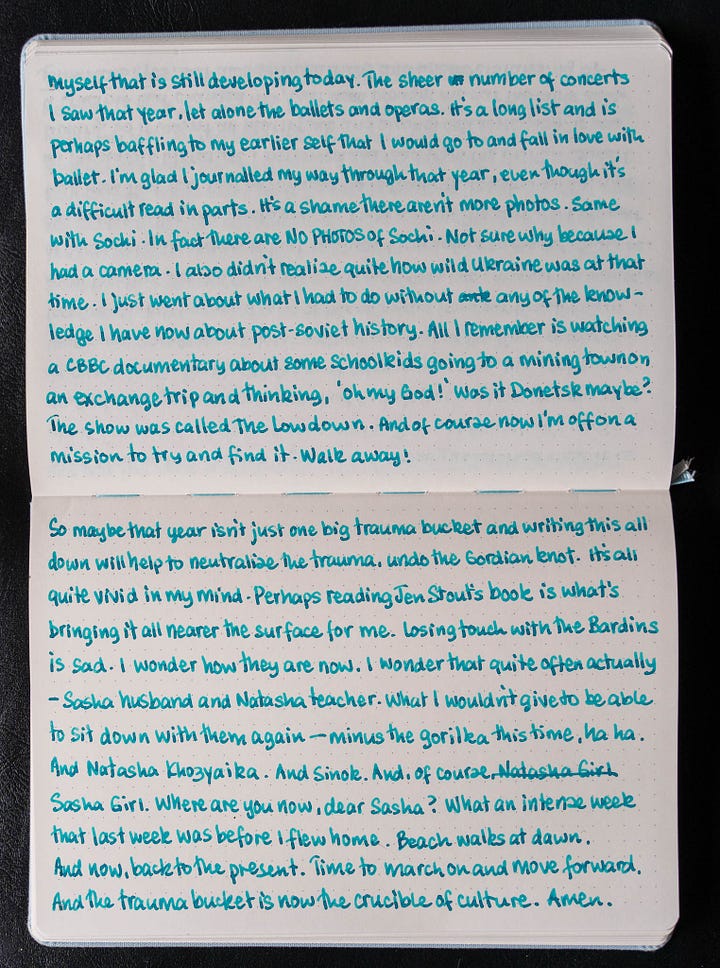 myself that is still developing today. The sheer number of concerts
I saw that year, let alone the ballets and operas. It's a long list and is
perhaps baffling to my earlier self that I would go to and fall in love with
ballet. I'm glad I journalled my way through that year, even though it's
a difficult read in parts. It's a shame there aren't more photos. Same
with Sochi. In fact there are NO PHOTOS of Sochi. Not sure why because I
had a camera. I also didn't realise quite how wild Ukraine was at that
time. I just went about what I had to do without any of the know-
ledge I have now about post-soviet history. All I remember is watching
a CBBC documentary about some schoolkids going to a mining town on
an exchange trip and thinking, 'oh my God!' Was it Donetsk maybe?
The show was called The Lowdown. And of course now I'm off on a
mission to try and find it. Walk away!
So maybe that year isn't just one big trauma bucket and writing this all
down will help to neutralise the trauma, undo the Gordian knot. It's all
quite vivid in my mind. Perhaps reading Jen Stout's book is what's
bringing it all nearer the surface for me. Losing touch with the Bardins
is sad. I wonder how they are now. I wonder that quite often actually
- Sasha husband and Natasha teacher. What I wouldn't give to be able
to sit down with them again — minus the gorilka this time, ha ha.
And Natasha Khozyaika. And Sinok. And, of course, Natasha Girl
Sasha Girl. Where are you now, dear Sasha? What an intense week
that last week was before I flew home. Beach walks at dawn.
And now, back to the present. Time to march on and move forward.
And the trauma bucket is now the crucible of culture. Amen.